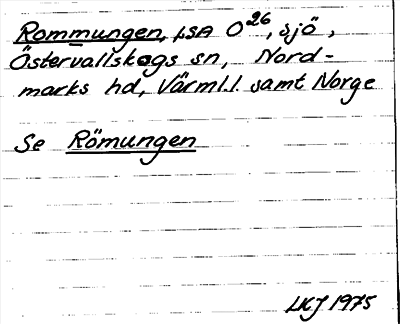 Rommungen, LSA O26, sjö,
Östervallskogs sn, Nord-
marks hd, Värml.l. samt Norge
Se Römungen
LKJ 1975